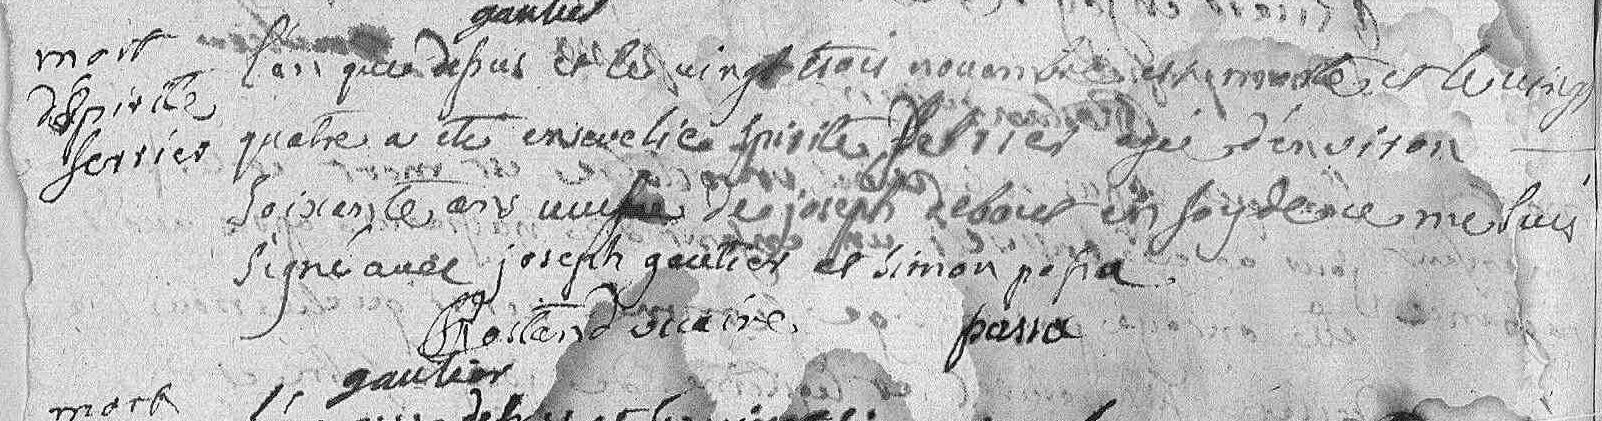 gautier
mort
d'Espirite
ferrier
l'an que dessus et le vingt trois novembre est morte et le vingt
quatre a ete ensevelie Spirite ferrier agée d'environ
soixante ans veufve de joseph debout en foy de ce me suis
signé avec joseph gautier et simon passa.
Rostend vicaire. passa
gautier
mort